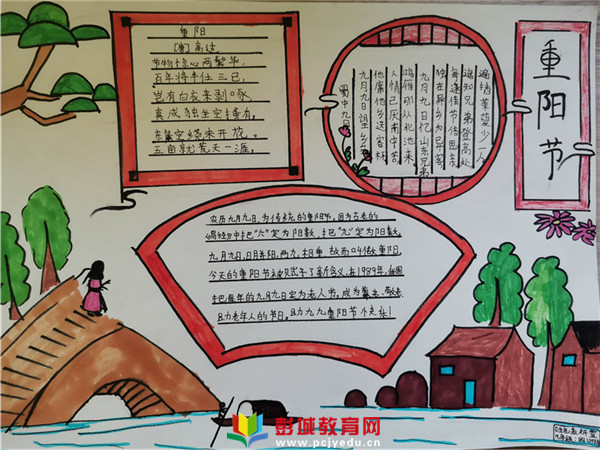 重阳
[唐] 高适
节物惊心两鬓华，
百年将半仕三已，
岂有白衣来剥啄
真成独坐空搔首，
东篱空绕未开放。
五亩就荒天一涯。
遍插茱萸少一人
遥知兄弟登高处
每逢佳节倍思亲
独在异乡为异客
九月九日忆山东兄弟
鸿雁那从北地来
人情已厌南中苦
他席他乡送客杯
九月九日望乡台
蜀中九日
重阳节
农历九月九日，为传统的重阳节，因为古老的
《易经》中把“六”定为阴数，把“九”定为阳数，
九月九日，日月并阳，两九相重，故而叫做重阳，
今天的重阳节被赋予了新含义，在1989年，我国
把每年的九月九日定为老人节，成为尊老、敬老
助老年人的节日，助九九重阳节快乐！
彭城教育网
www.pcjyedu.cn